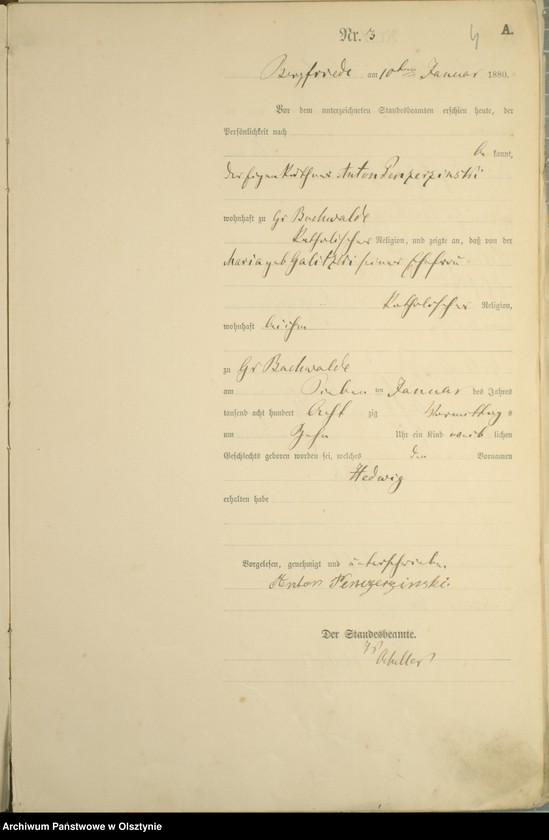 Nr. 3
4
A.
Bergfriede am 10ten Januar 1880.
Vor dem unterzeichneten Standesbeamten erschien heute, der
Persönlichkeit nach
be kannt,
der Eigenkäthner Anton
wohnhaft zu Gr Buchwalde
katholischer Religion, und zeigte an, daß von der
Maria geb seiner Ehefrau
katholischer Religion,
wohnhaft bei ihm
zu Gr Buchwalde
am Sieben ten Januar des Jahres
tausend acht hundert Acht zig Vormittag s
um Zehn Uhr ein Kind weib lichen
Geschlechts geboren worden sei, welches den Vornamen
Hedwig
erhalten habe
Vorgelesen, genehmigt und unterschrieben.
Anton
Der Standesbeamte.
Archiwum Państwowe w Olsztynie